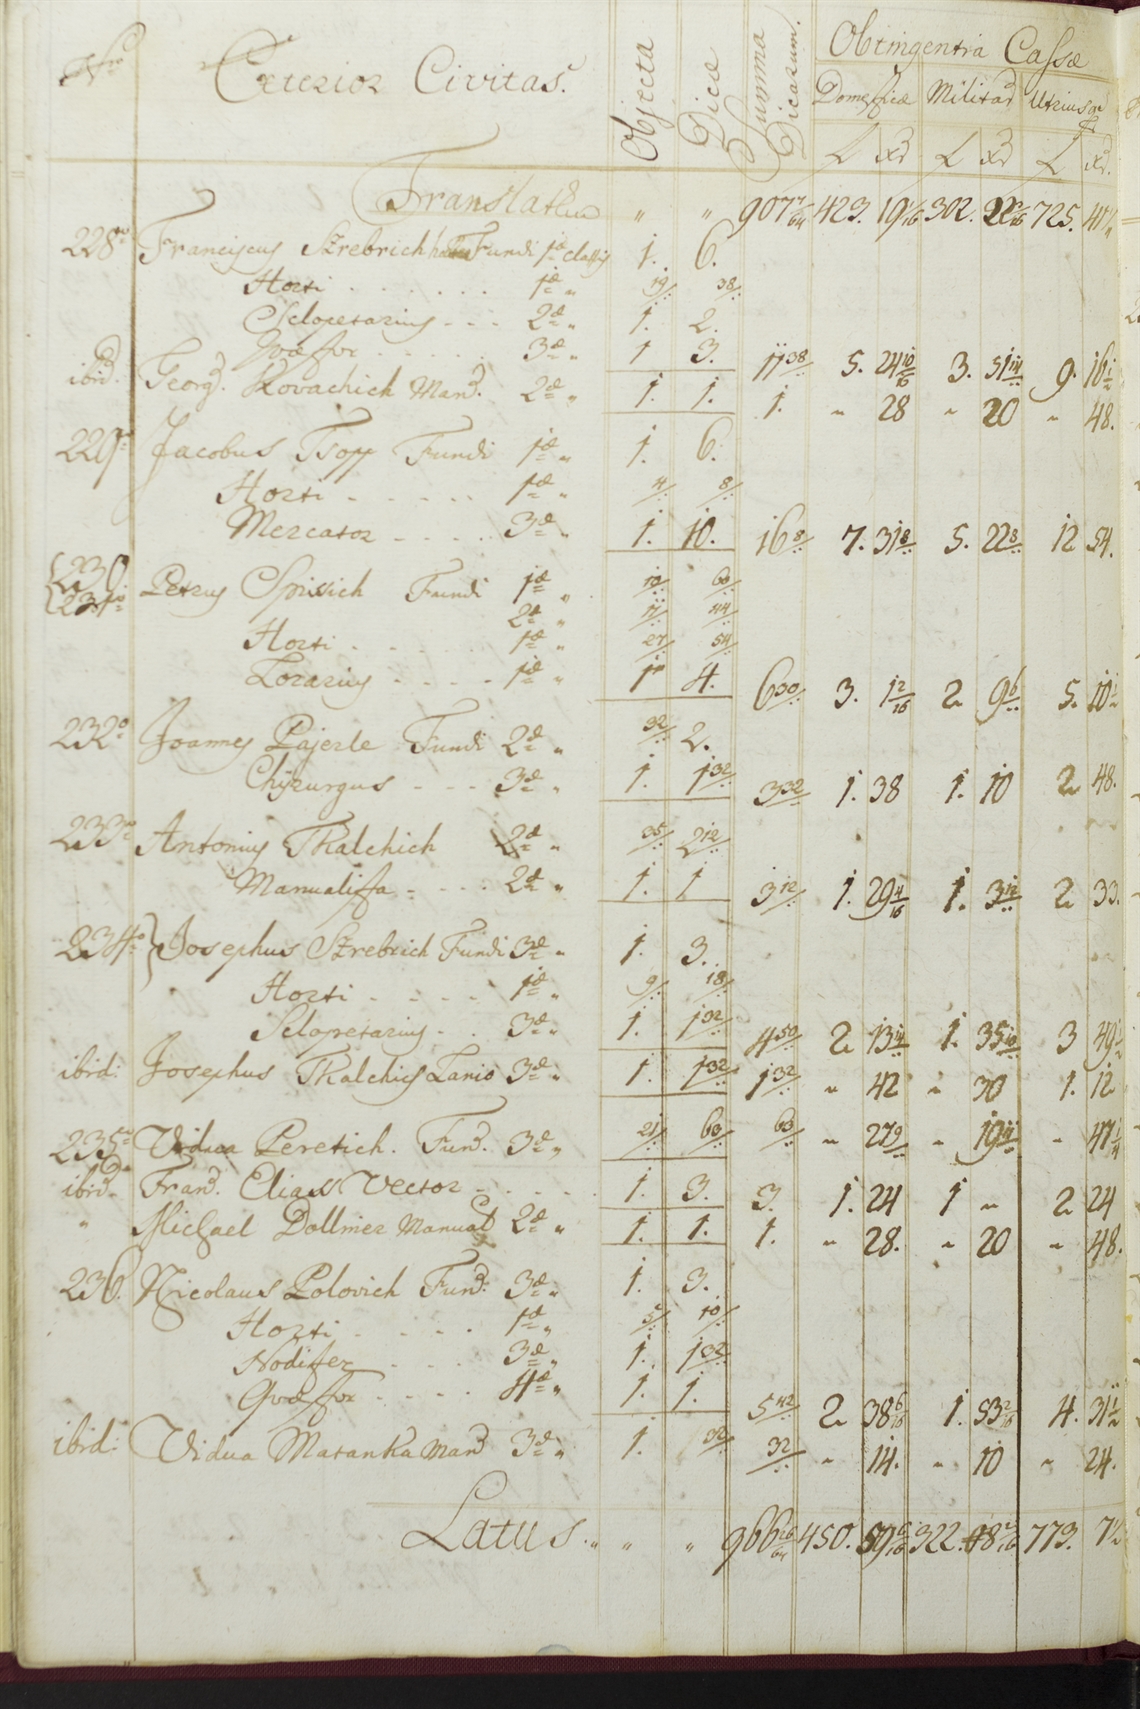 Exterior Civitas.
Objecta
Dicæ
Summa Dicarum.
Obtingentia Cassæ
Domesticæ Militar Utriusq
f xr f xr f xr.
Translatum " " 907 423. 19 302. 725. 40
228 Franciscus Strebrich Fundi 1æ classis 1. 6.
Horti . . . . . . 1æ " 19/ 38/
Sclopetarius - - - 2æ " 1. 2.
Quæstor . . . . . 3æ " 1 3. 11 38/ 5. 24 10/16 3. 51 14 9. 16
ibid. Georg. Kovachich Man. 2æ " 1. 1. 1. " 28 " 20 " 48.
229 Jacobus Tsopp Fundi 1æ " 1. 6.
Horti - - - - - 1æ " 4/ 8/
Mercator - - - - 3æ " 1. 10. 16 8/ 7. 31 8 5. 22 8 12 54.
230
231 Petrus Spissich Fundi 1æ " 10/ 60/
2æ " 11/ 44/
Horti . . . . . 1æ " 27/ 54/
Lorarius - - - - 1æ " 1 4. 6 30/ 3. 1 2/16 2 9 6 5. 10
232 Joannes Pajerle Fundi 2æ " 32/ 2.
Chÿrurgus - - - 3æ " 1. 1 32/ 3 32/ 1. 38 1. 10 2 48.
233 Antonius Tkalchich 2æ " 35/ 2 12/
Manualista - - - 2æ " 1. 1 3 12/ 1. 29 4/16 1. 3 12 2 33.
234 } Josephus Strebrich Fundi 3æ " 1. 3.
Horti - - - - 1æ " 9/ 18/
Sclopetarius - . 3æ " 1. 1 32/ 4 50/ 2 13 14 1. 35 10 3 49
ibid: Josephus Tkalchich Lanio 3æ " 1. 1 32/ 1 32/ " 42 " 30 1. 12
235 Vidua Peretich. Fund. 3æ " 21/ 63/ 63/ " 27 9 " 19 11 " 47
ibid. Franc. Eliass Vector - . . . 1. 3. 3. 1. 24 1 " 2 24
" Michael Dollmer Manual 2æ " 1. 1. 1. " 28. " 20 " 48.
236. Nicolaus Polovich Fund: 3æ " 1. 3.
Horti - . . . . 1æ " 5/ 10/
Nodifex . . . . 3æ " 1. 1 32/
Quæstor . . . . 4æ " 1. 1. 5 42/ 2 38 6/16 1. 53 2/16 4. 31
ibid: Vidua Maranka Man 3æ " 1. 32/ 32/ " 14. " 10 " 24.
Latus . " " " 966 26/64 450. 59 6/16 322. 48 773. 7